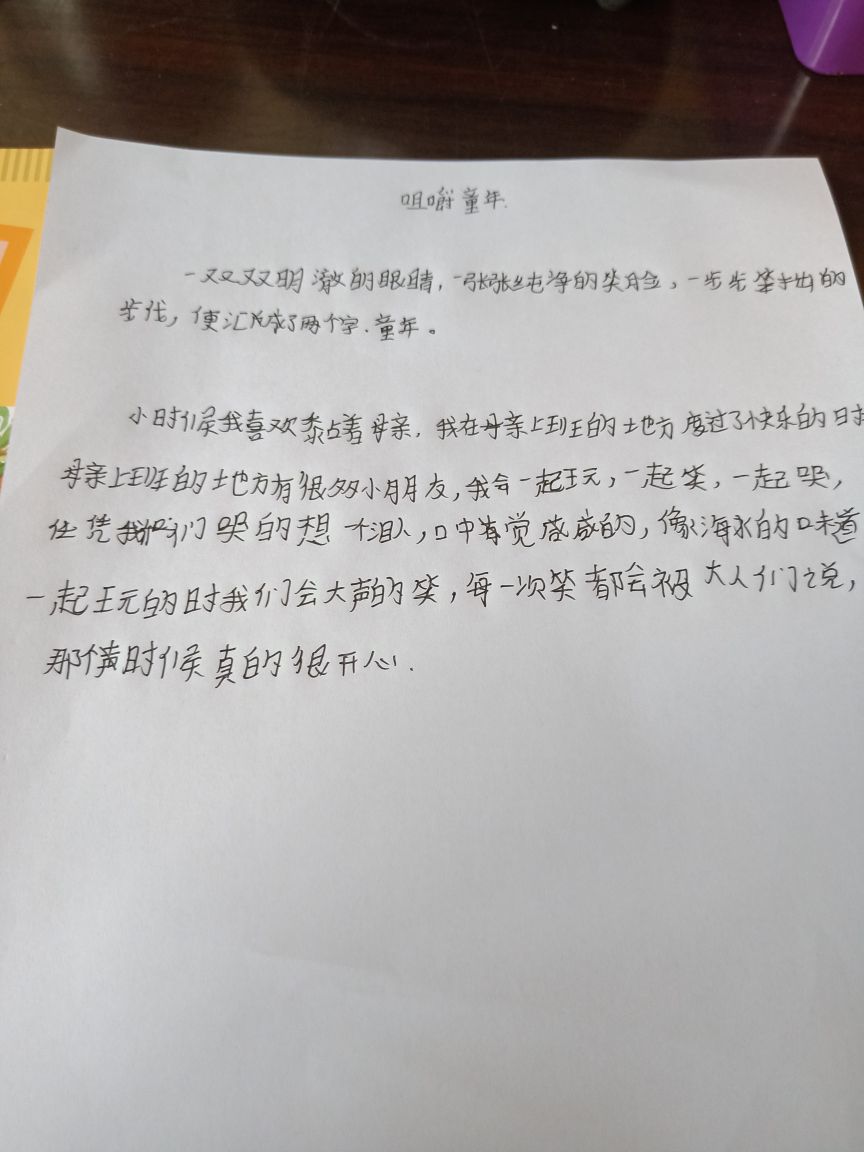 咀嚼童年.
一双双明澈的眼睛，一张张纯净的笑脸，一步步笨拙的
步伐，便汇成了两个字.童年。
小时候我喜欢黍占着母亲，我在母亲上班的地方度过了快乐的日
母亲上班的地方有很多小朋友，我会一起玩，一起笑，一起哭，
任凭我们哭的想个泪人，口中有觉咸咸的，像海水的口味道
一起玩的时我们会大声的笑，每一次笑都会被大人们说，
那个时候真的很开心.